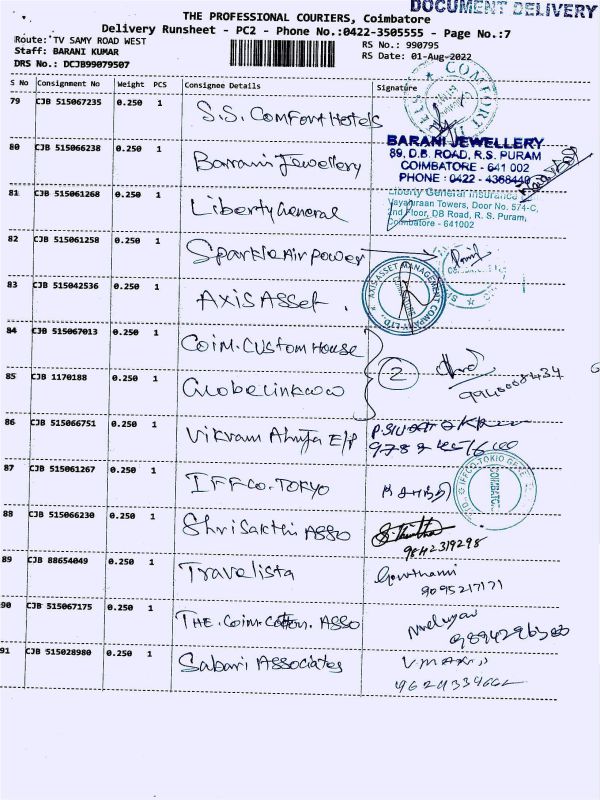 DOCUMENT DELIVERY
THE PROFESSIONAL COURIERS, Coimbatore
Delivery Runsheet - PC2 - Phone No.:0422-3505555 - Page No.:7
Route: TV SAMY ROAD WEST
RS No.: 990795
Staff: BARANI KUMAR
RS Date: 01-Aug-2022
DRS No.: DCJB99079507
S No Consignment No Weight PCS Consignee Details Signature
79 CJB 515067235 0.250 1 S.S. Comfort Hotels
COMFORT
80 CJB 515066238 0.250 1 Barani Jewellery
BARANI JEWELLERY
89, D.B. ROAD, R.S. PURAM
COIMBATORE - 641 002
PHONE : 0422 - 4368440
81 CJB 515061268 0.250 1 Liberty General
Liberty General Insurance
Vayahraan Towers, Door No. 574-C,
2nd Floor, DB Road, R. S. Puram,
Coimbatore - 641002
82 CJB 515061258 0.250 1 Sparkle Air Power
83 CJB 515042536 0.250 1 Axis Asset.
AXIS ASSET MANAGEMENT COMPANY LTD.
COIMBATORE
84 CJB 515067013 0.250 1 Coim. Custom House
2
85 CJB 1170188 0.250 1 Globelinkww
86 CJB 515066751 0.250 1 Vikram Ahuja E/P
87 CJB 515061267 0.250 1 IFFCO. TOKYO
IFFCO-TOKIO GENE
COIMBATO
88 CJB 515066230 0.250 1 Shri Sakthi ASSO
9842319298
89 CJB 88654049 0.250 1 Travelista
Gowthami
9095217171
90 CJB 515067175 0.250 1 THE. Coim. Cotton. ASSO
91 CJB 515028980 0.250 1 Sabari Associates